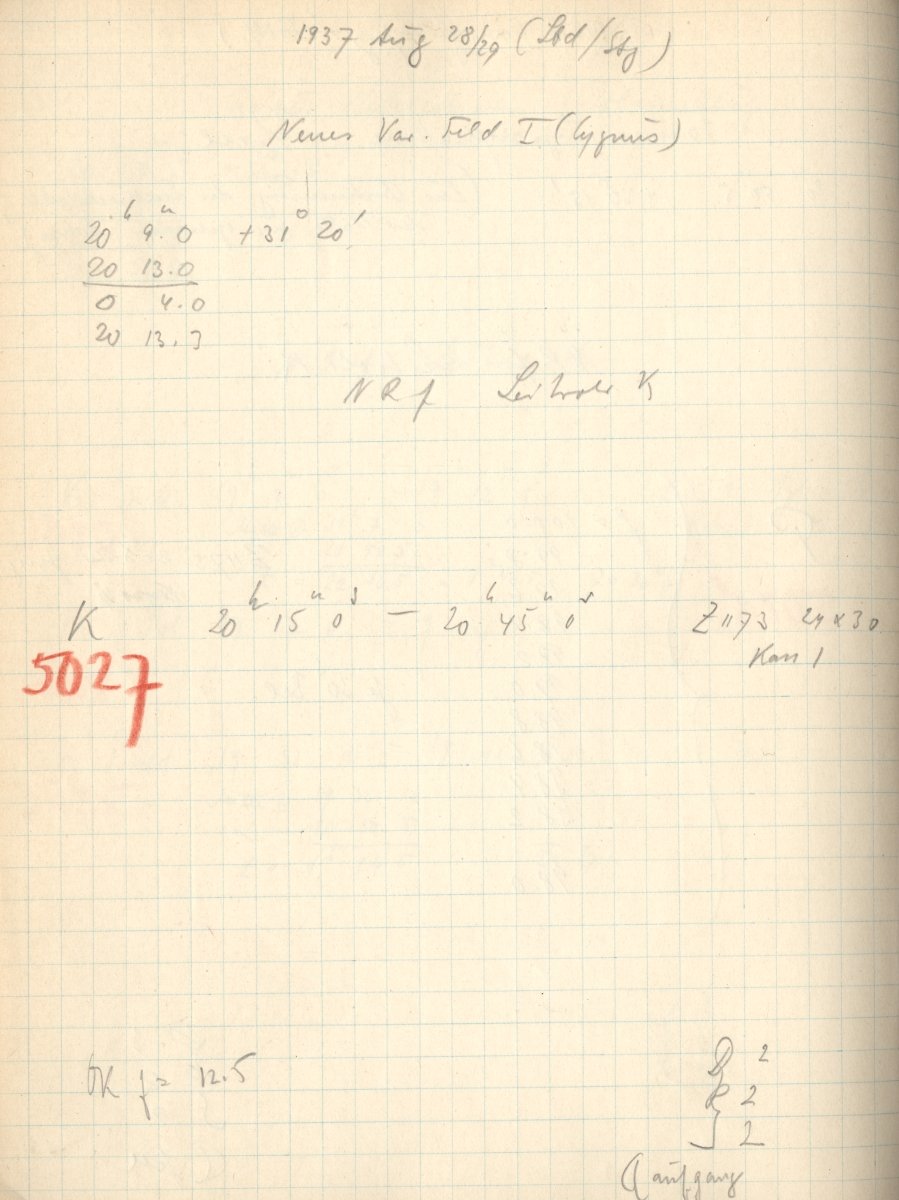 1937 Aug 28/29 (Sbd/Stz)
Neues Var. Feld I (Cygnus)
20 h 9 m.0 +31° 20'
20 13.0
0 4.0
20 13.3
N R f Leitrohr K
K 20 h 15 m 0 s — 20 45 m 0 s Z 1173 24 x 30
5027 Kass 1
K f = 12.5
2
R 2
J 2
aufgang